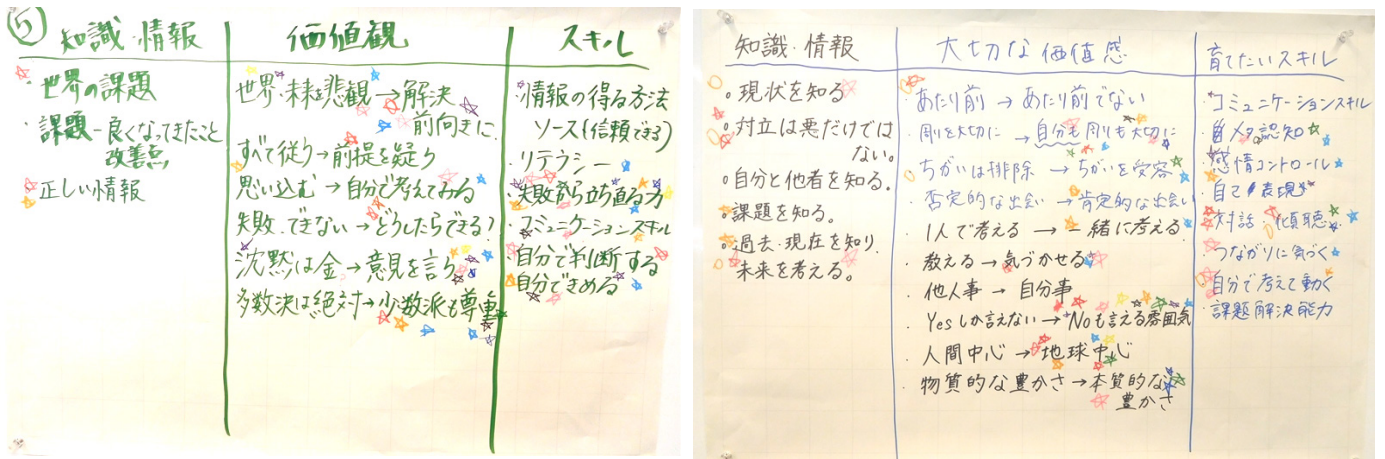 ⑤ 知識・情報
・世界の課題
・課題－良くなってきたこと
改善点
・正しい情報
価値観
世界・未来を悲観→解決
前向きに
すべて従う→前提を疑う
思い込む→自分で考えてみる
失敗・できない→どうしたらできる?
沈黙は金→意見を言う
多数決は絶対→少数派も尊重
スキル
・情報の得る方法
ソース(信頼できる)
・リテラシー
・失敗から立ち直る力
・コミュニケーションスキル
・自分で判断する
自分できめる
知識・情報
○現状を知る
○対立は悪だけでは
ない。
○自分と他者を知る。
○課題を知る。
○過去・現在を知り
未来を考える。
大切な価値感
・あたり前→あたり前でない
・周りを大切に→自分も周りも大切に
・ちがいは排除→ちがいを受容
・否定的な出会い→肯定的な出会い
・1人で考える→一緒に考える
・教える→気づかせる
・他人事→自分事
・Yesしか言えない→Noも言える雰囲気
・人間中心→地球中心
・物質的な豊かさ→本質的な
豊かさ
育てたいスキル
・コミュニケーションスキル
・メタ認知
・感情コントロール
・自己表現
・対話・傾聴
・つながりに気づく
・自分で考えて動く
・課題解決能力